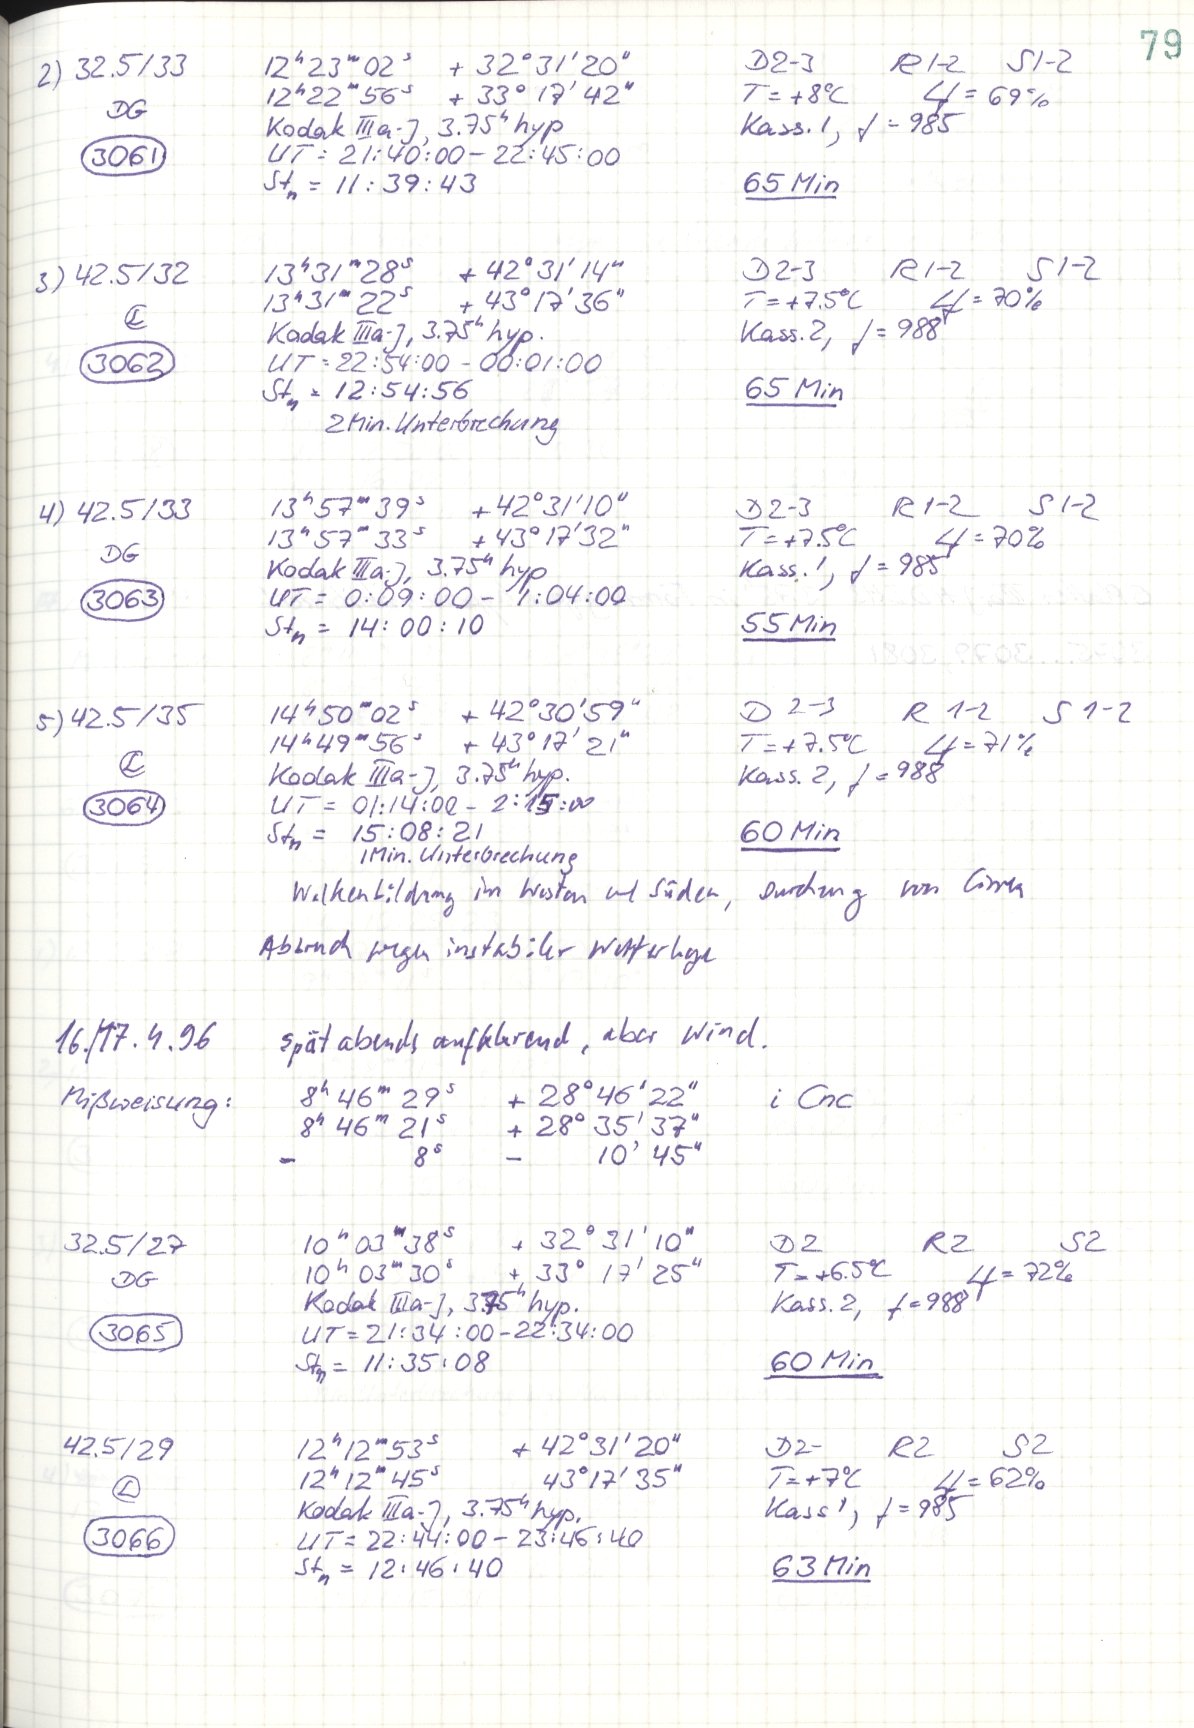 79
2) 32.5/33 12ʰ23ᵐ02ˢ + 32°31'20" D2-3 R1-2 S1-2
DG 12ʰ22ᵐ56ˢ + 33°17'42" T=+8°C φ=69%
Kodak IIIa-J, 3.75ʰ hyp Kass.1, f=985
3061 UT = 21:40:00 - 22:45:00
Stₙ = 11:39:43 65 Min
3) 42.5/32 13ʰ31ᵐ28ˢ + 42°31'14" D2-3 R1-2 S1-2
13ʰ31ᵐ22ˢ + 43°17'36" T=+7.5°C φ=70%
Kodak IIIa-J, 3.75ʰ hyp. Kass.2, f=988
3062 UT = 22:54:00 - 00:01:00
Stₙ = 12:54:56 65 Min
2Min. Unterbrechung
4) 42.5/33 13ʰ57ᵐ39ˢ + 42°31'10" D2-3 R1-2 S1-2
DG 13ʰ57ᵐ33ˢ + 43°17'32" T=+7.5°C φ=70%
Kodak IIIa-J, 3.75ʰ hyp Kass.1, f=985
3063 UT = 0:09:00 - 1:04:00
Stₙ = 14:00:10 55 Min
5) 42.5/35 14ʰ50ᵐ02ˢ + 42°30'59" D 2-3 R 1-2 S 1-2
14ʰ49ᵐ56ˢ + 43°17'21" T=+7.5°C φ=71%
Kodak IIIa-J, 3.75ʰ hyp. Kass.2, f=988
3064 UT = 01:14:00 - 2:15:00
Stₙ = 15:08:21 60 Min
1Min. Unterbrechung
Wolkenbildung im Westen und Süden, Durchzug von Cirren
Abbruch wegen instabiler Wetterlage
16./17.4.96 spät abends aufklarend, aber Wind.
Mißweisung: 8ʰ46ᵐ29ˢ + 28°46'22" i Cnc
8ʰ46ᵐ21ˢ + 28°35'37"
- 8ˢ - 10'45"
32.5/27 10ʰ03ᵐ38ˢ + 32°31'10" D2 R2 S2
DG 10ʰ03ᵐ30ˢ + 33°17'25" T=+6.5°C φ=72%
Kodak IIIa-J, 3.75ʰ hyp. Kass.2, f=988
3065 UT = 21:34:00 - 22:34:00
Stₙ = 11:35:08 60 Min
42.5/29 12ʰ12ᵐ53ˢ + 42°31'20" D2- R2 S2
12ʰ12ᵐ45ˢ 43°17'35" T=+7°C φ=62%
Kodak IIIa-J, 3.75ʰ hyp. Kass 1, f=985
3066 UT = 22:44:00 - 23:46:40
Stₙ = 12:46:40 63 Min